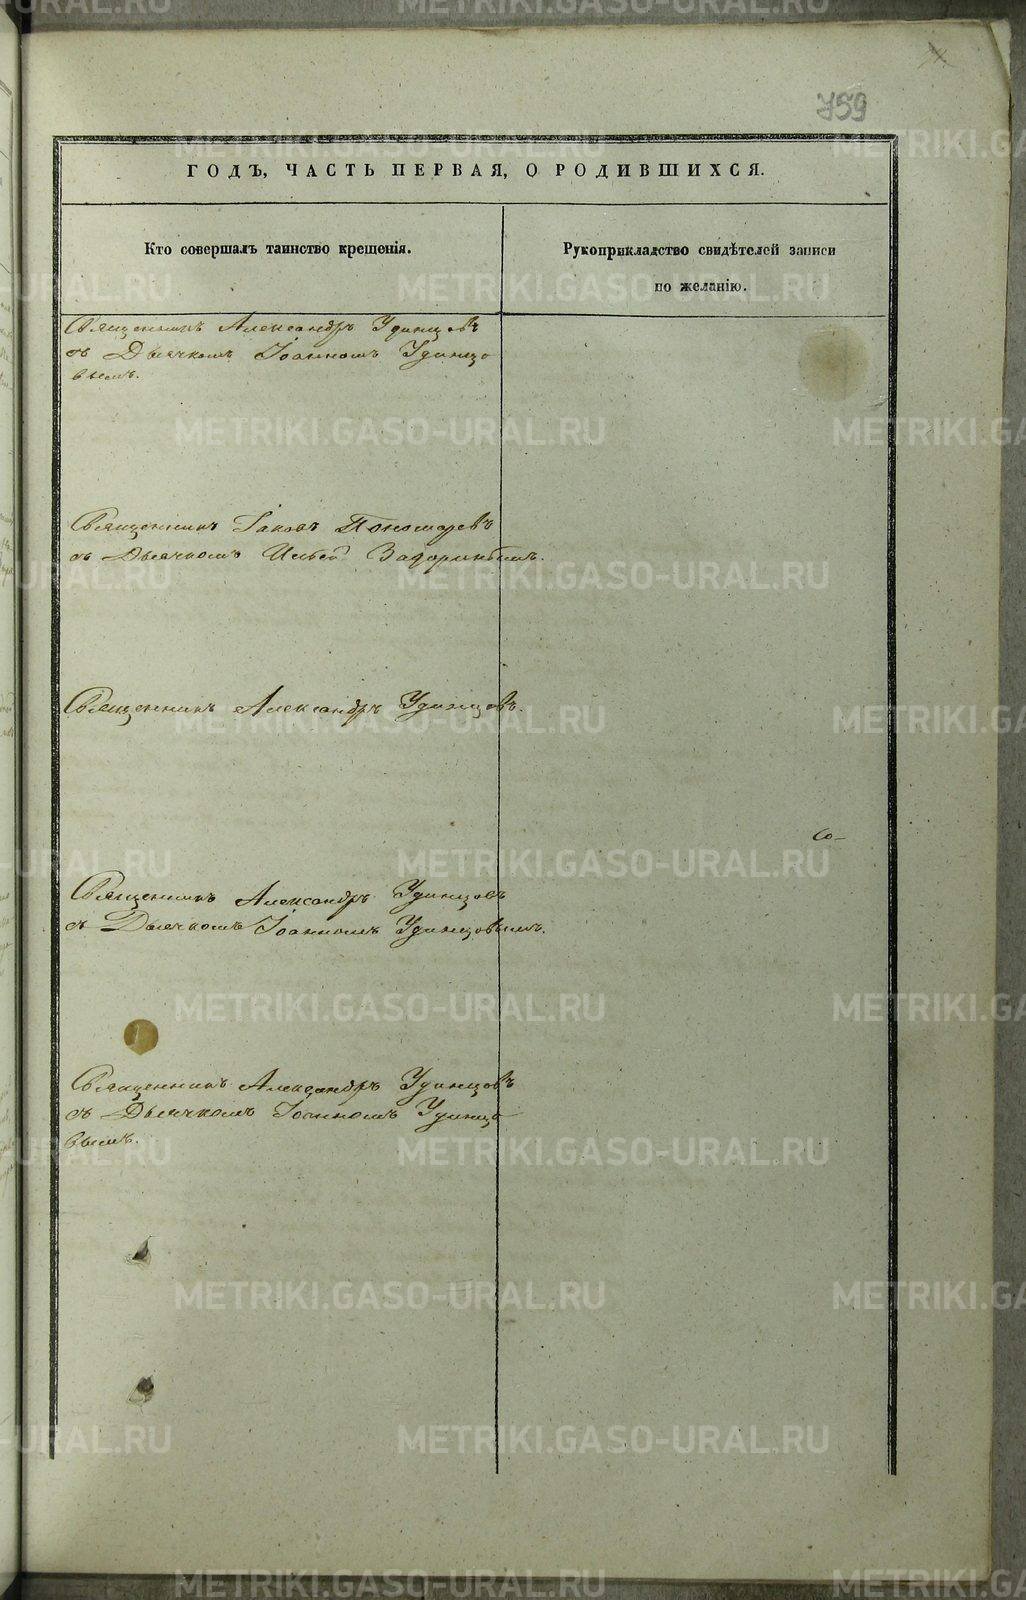 759
ГОДЪ, ЧАСТЬ ПЕРВАЯ, О РОДИВШИХСЯ.
Кто совершалъ таинство крещенія.
Рукоприкладство свидѣтелей записи
по желанію.
Священникъ Александръ Удинцовъ
съ Дьячкомъ Іоанномъ Удинцо
вымъ.
Священникъ Іаковъ Пономаревъ
съ Дьячкомъ Ильей Задоринымъ.
Священникъ Александръ Удинцовъ.
Со-
Священникъ Александръ Удинцовъ
съ Дьячкомъ Іоанномъ Удинцовымъ.
Священникъ Александръ Удинцовъ
съ Дьячкомъ Іоанномъ Удинцо
вымъ.
METRIKI.GASO-URAL.RU